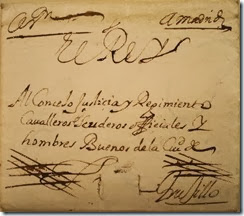 El Rey
Al Concejo Justicia y Regimiento
Cavalleros Escuderos officiales Y
hombres Buenos de la Ciud de
Trusillo